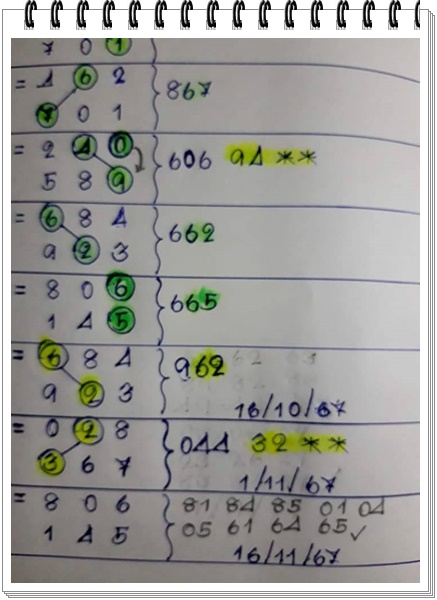 7 0 1
= 4 6 2
7 0 1
867
= 2 4 0
5 8 9
606 94 **
= 6 8 4
9 2 3
662
= 8 0 6
1 4 5
665
= 6 8 4
9 2 3
962
16/10/67
= 0 2 8
3 6 7
044 32 **
1/11/67
= 8 0 6
1 4 5
81 84 85 01 04
05 61 64 65 ✓
16/11/67